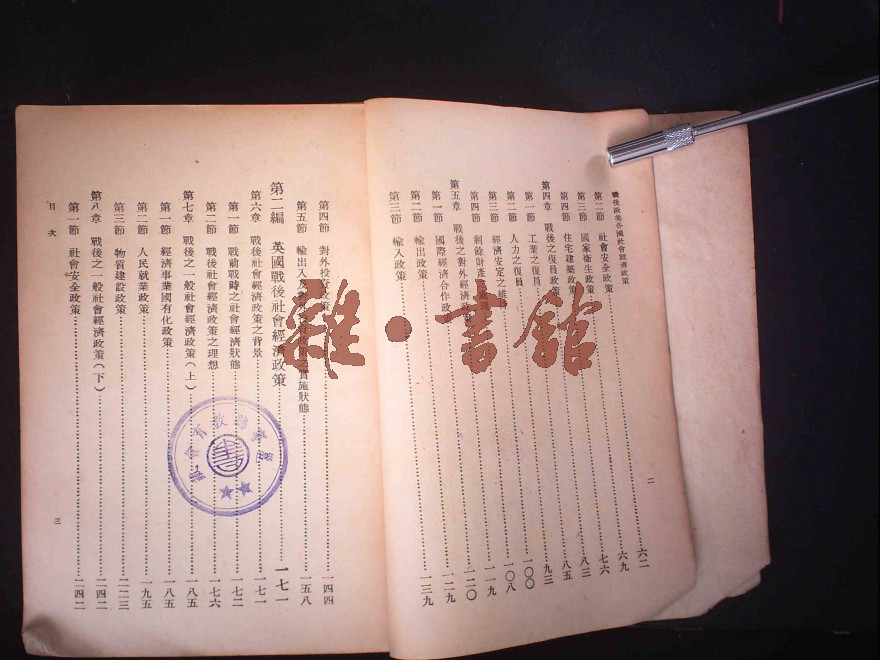 戰後歐美各國社會經濟政策
第二節 社會安全政策……六二
第三節 國家衛生政策……六九
第四節 住宅建築政策……七六
第四章 戰後之復員政策……八三
第一節 工業之復員……八五
第二節 人力之復員……九三
第三節 經濟安定之維……一〇〇
第四節 剩餘財產 處理……一〇八
第五章 戰後之對外經濟政……一一九
第一節 國際經濟合作政……一二〇
第二節 輸出政策……一二九
第三節 輸入政策……一三九
二
第四節 對外投資政策……一四四
第五節 輸出入及對外 政策之實施狀態……一五八
第二編 英國戰後社會經濟政策……一七一
第六章 戰後社會經濟政策之背景……一七一
第一節 戰前戰時之社會經濟狀態……一七二
第二節 戰後社會經濟政策之理想……一七六
第七章 戰後之一般社會經濟政策(上)……一八五
第一節 經濟事業國有化政策……一八五
第二節 人民就業政策……一九五
第三節 物質建設政策……二二三
第八章 戰後之一般社會經濟政策(下)……二四二
第一節 社會安全政策……二四二
目次
三
雜·書館